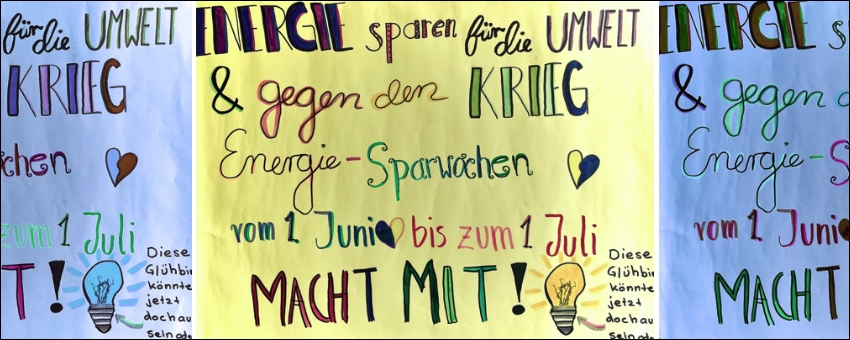 für die UMWELT
KRIEG
chen
zum 1 Juli
T!
Diese
Glühbi
könnte
jetzt
doch au
sein od
ENERGIE sparen für die UMWELT
& gegen den KRIEG
Energie-Sparwochen
vom 1 Juni bis zum 1 Juli
MACHT MIT!
Diese
Glühbi
könnte
jetzt
doch au
sein od
ENERGIE spar
& gegen d
Energie-S
vom 1 Juni
MACHT